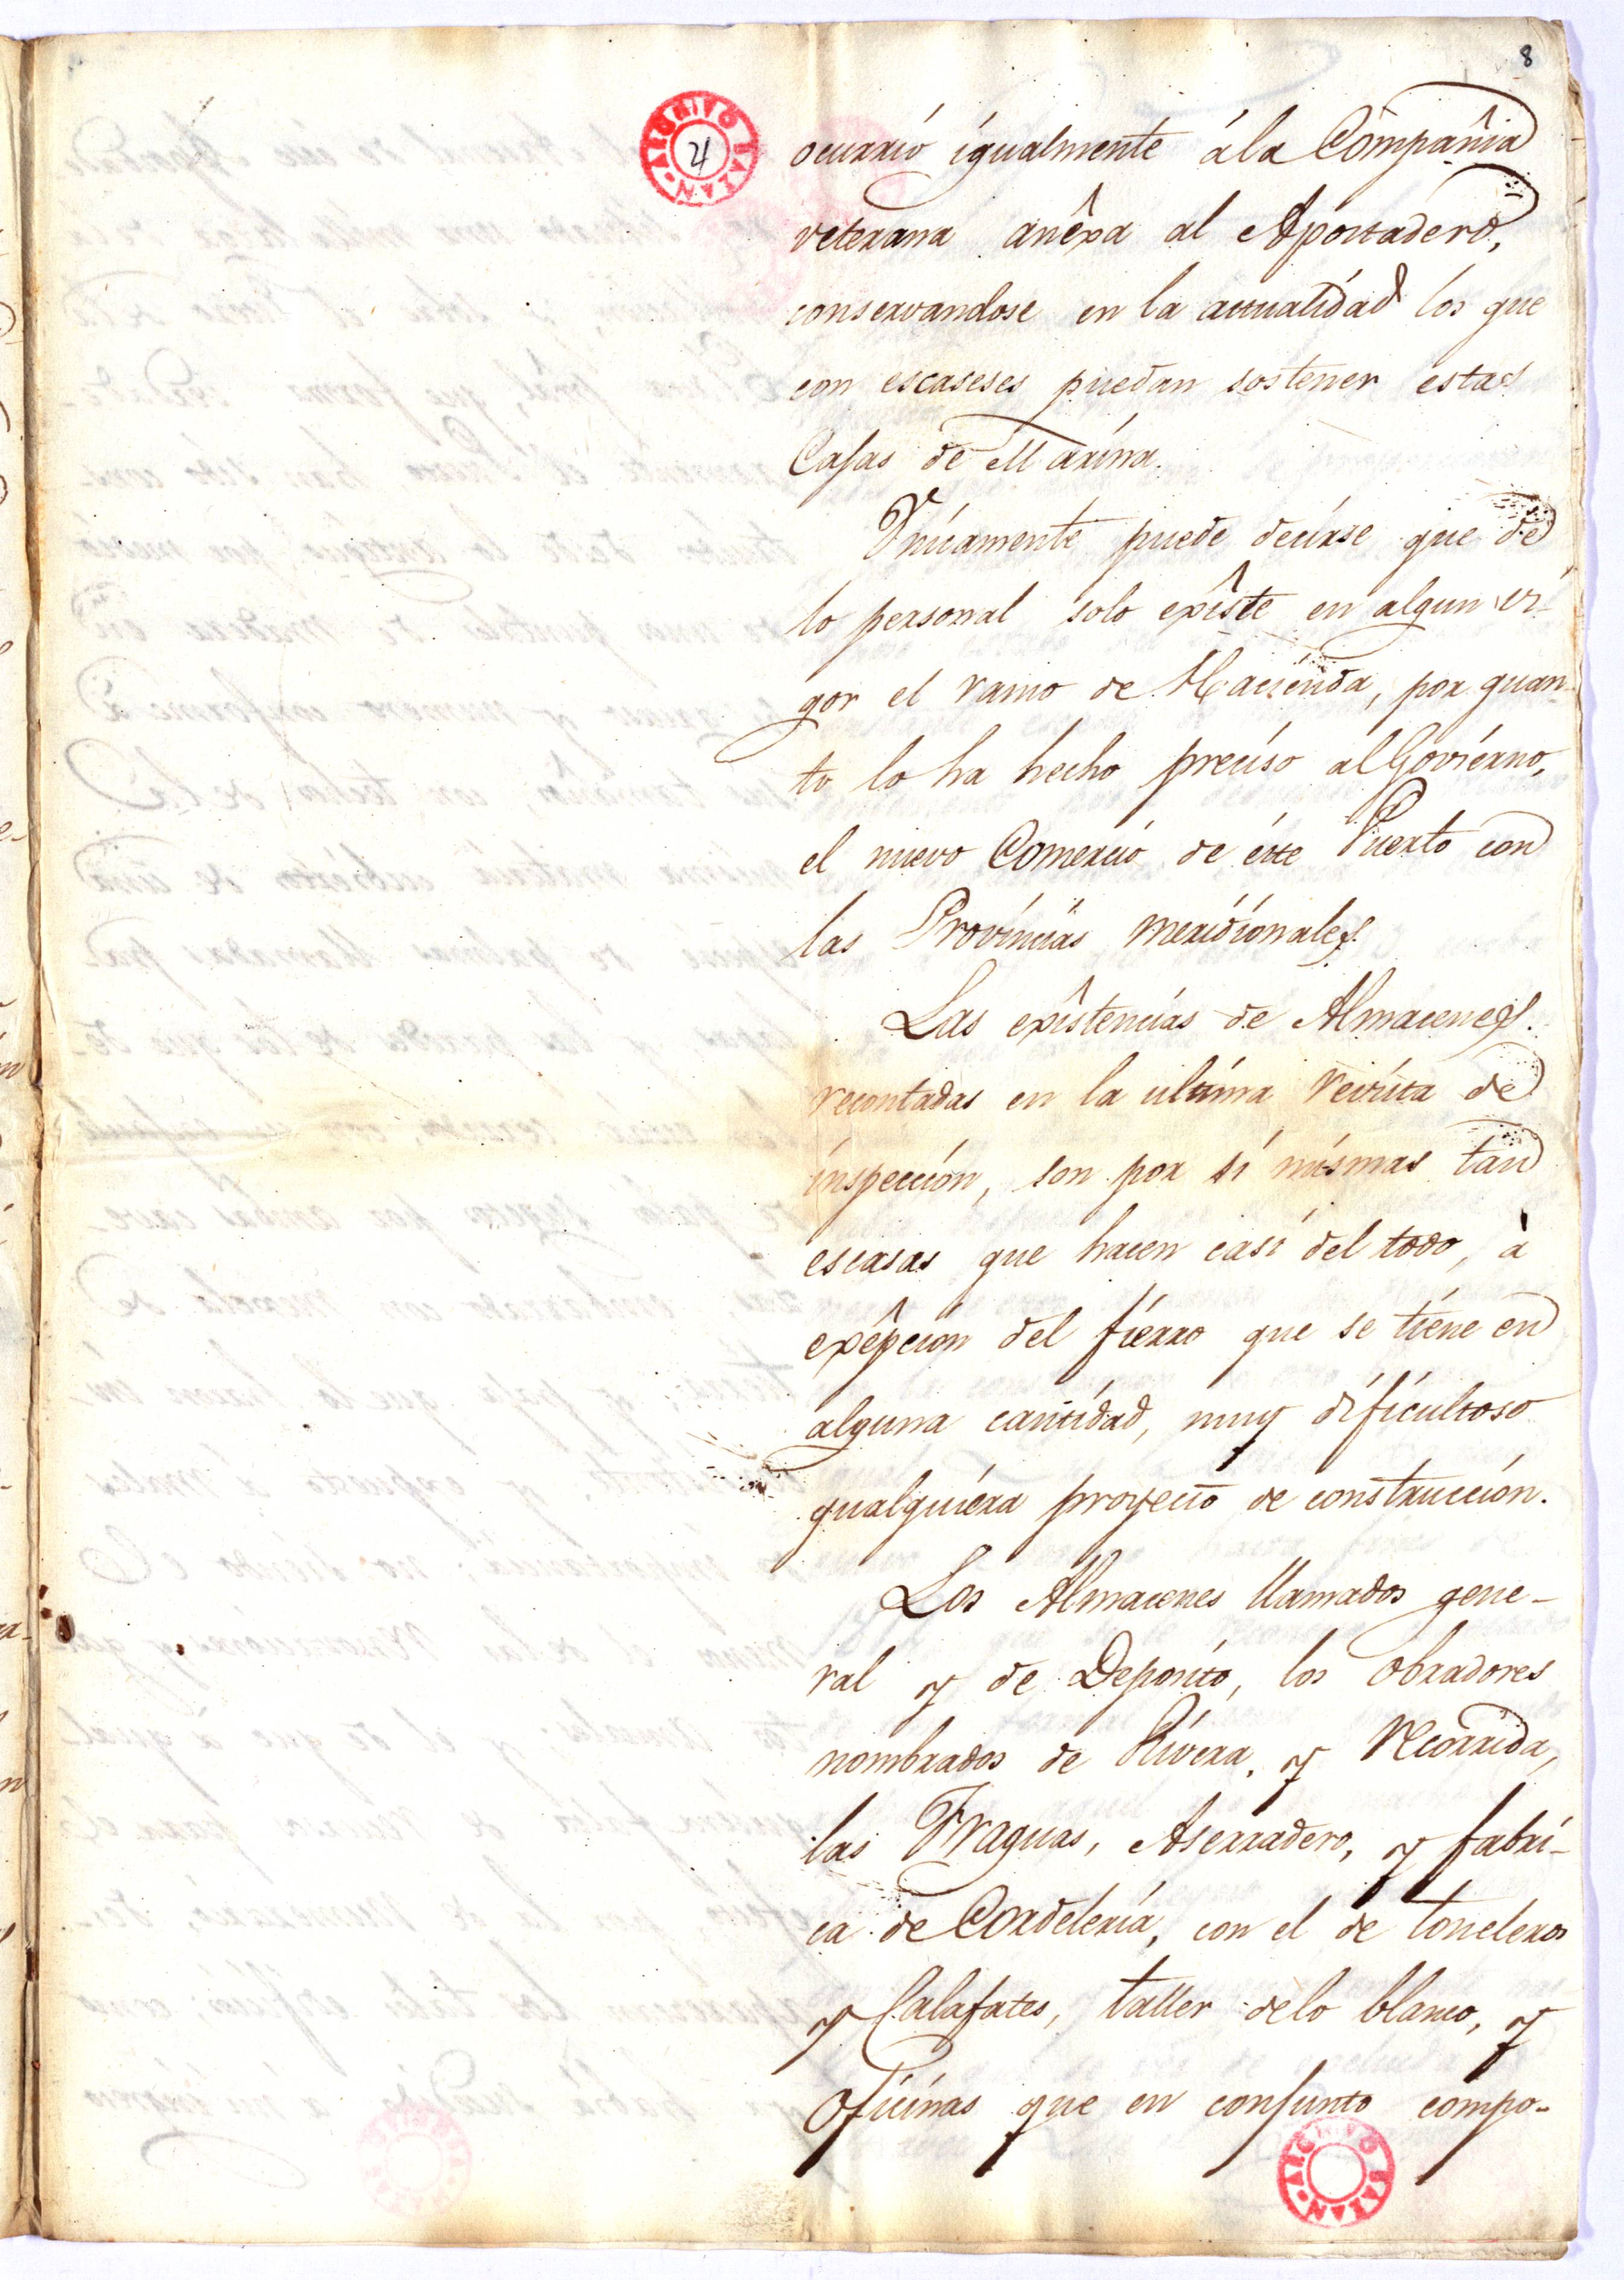 8
ARCHIVO BAZAN
4
ocurrió igualmente ála Compañia
veterana anêxa al Apostadero,
conservandose en la actualidad los que
con escaseses puedan sostener estas
Casas de Marina.
Unicamente puede decirse que de
lo personal solo exîste en algun vi-
gor el ramo de Hacienda, por quan-
to lo ha hecho preciso al Govierno,
el nuevo Comercio de éste Puerto con
las Provincias meridionales.
Las exîstencias de Almacenes.
recontadas en la ultima revista de
inspección, son por sí mismas tan
escasas que hacen casi del todo, á
exêpcion del fierro que se tiene en
alguna cantidad, muy dificultoso
qualquiera proyecto de construcción.
Los Almacenes llamados gene-
ral y de Deposito, los obradores
nombrados de Rivera, y Recorrida,
las Fraguas, Aserradero, y fabri-
ca de Cordelería, con el de toneleros
y Calafates, taller delo blanco, y
Oficinas que en conjunto compo-
ARCHIVO BAZAN